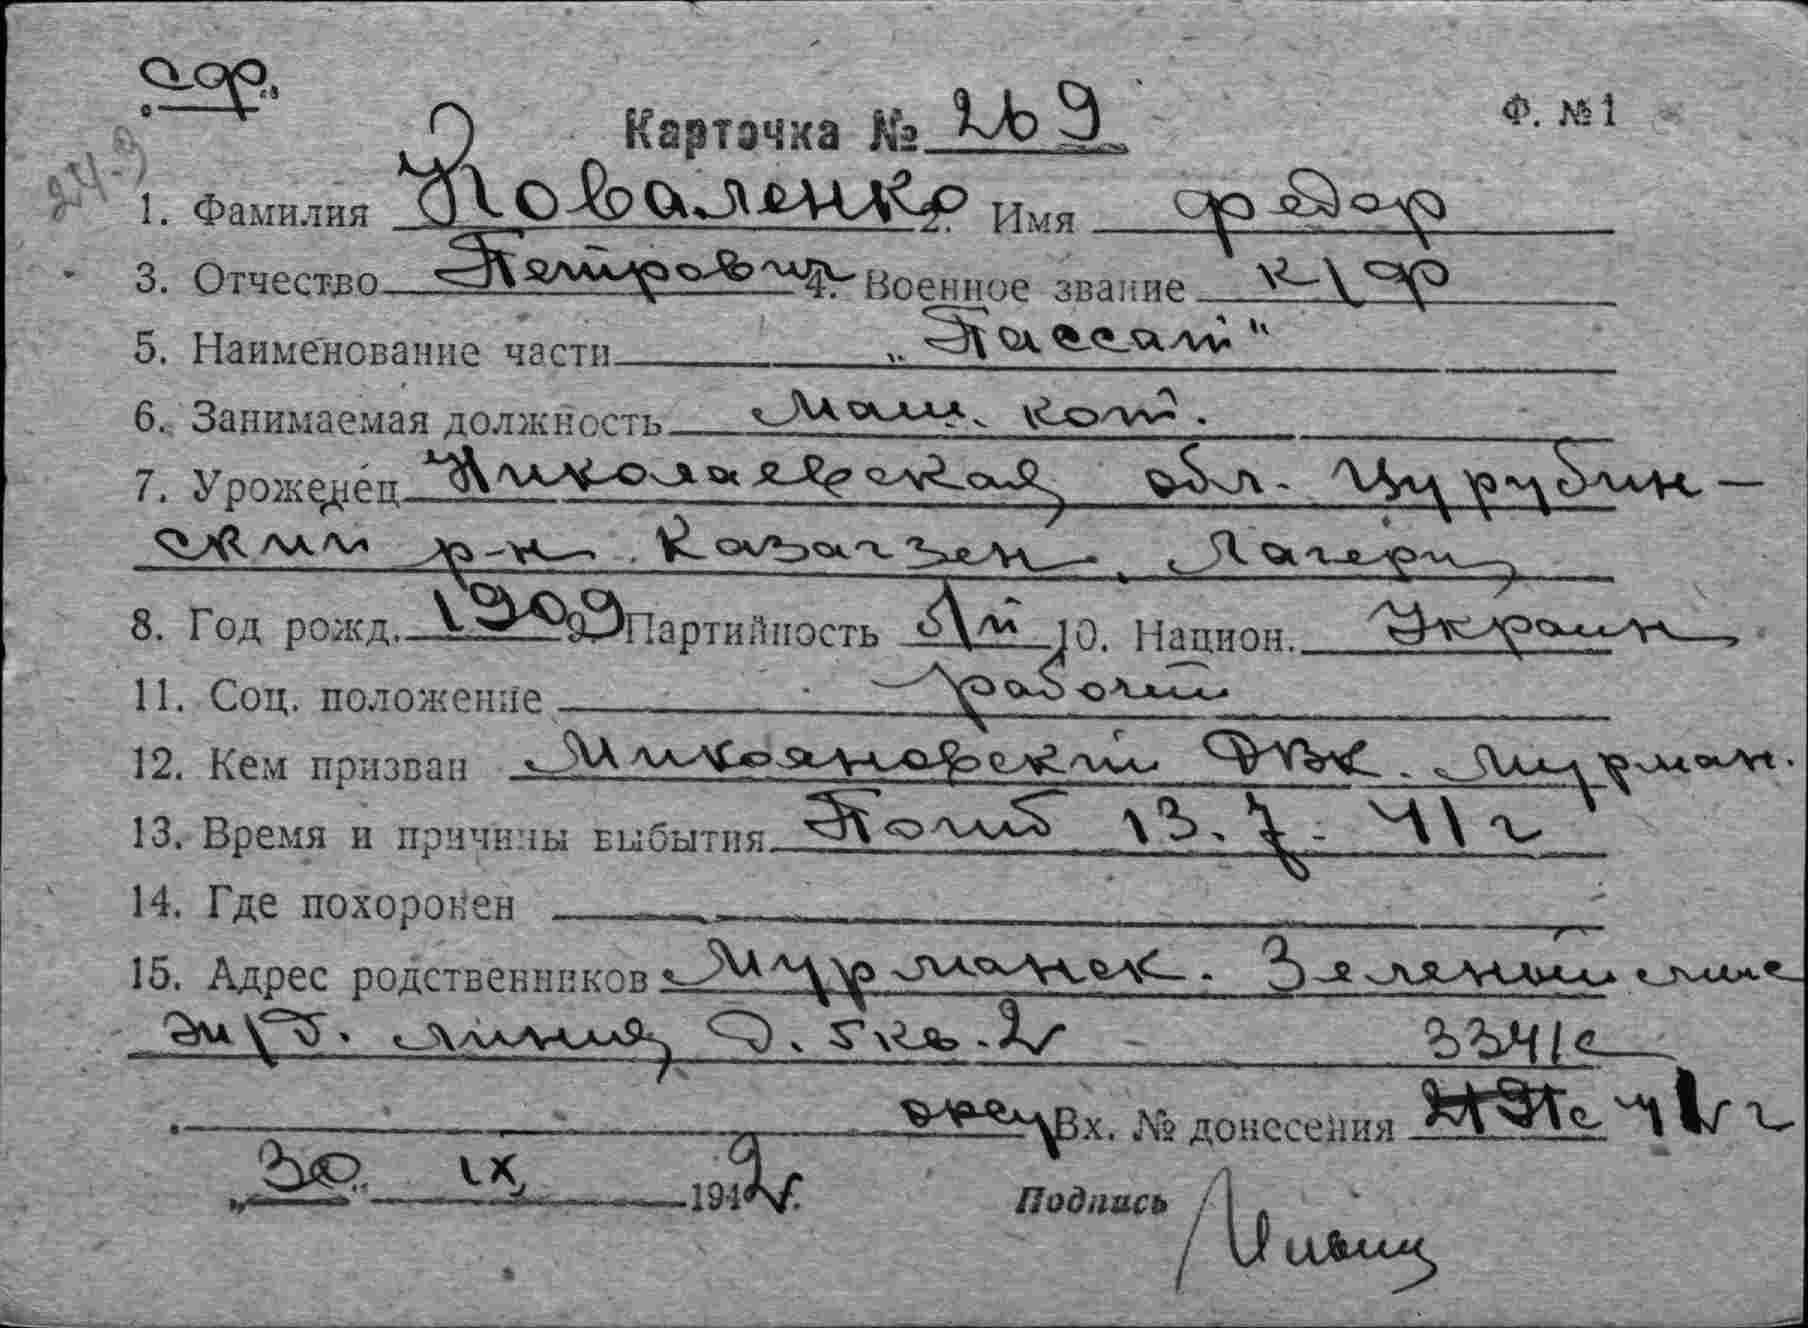 „СФ.“
Карточка № 269 Ф. № 1
24-3
1. Фамилия Коваленко 2. Имя Федор
3. Отчество Петрович 4. Военное звание к/ф
5. Наименование части „Пассат“
6. Занимаемая должность Маш. кот.
7. Уроженец Николаевская обл. Цурубин-
ский р-н. Казачзен, Лагеря
8. Год рожд. 1909 9. Партийность б/п 10. Национ. Украин
11. Соц. положение рабочий
12. Кем призван Микояновский ДВК. Мурман.
13. Время и причины выбытия Погиб 13.7.41 г
14. Где похоронен
15. Адрес родственников Мурманск. Зеленый мыс
ж/д. линия д. 5 кв. 2
3341с
Вх. № донесения 42 г
„30“ IX 1942 г.
Подпись